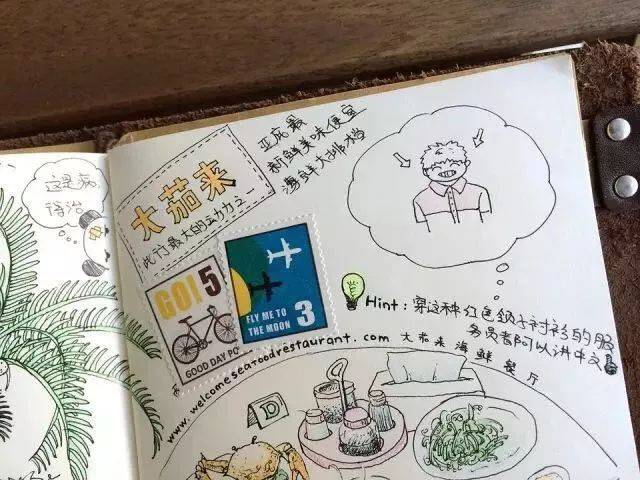 这是病
待治
大茄来
此行最大的动力之一
亚庇最
新鲜美味便宜
海鲜大排档
GO! 5
GOOD DAY PO
FLY ME TO
THE MOON 3
Hint: 穿这种红色领子衬衫的服
务员都可以讲中文
www.welcomeseafoodrestaurant.com 大茄来海鲜餐厅